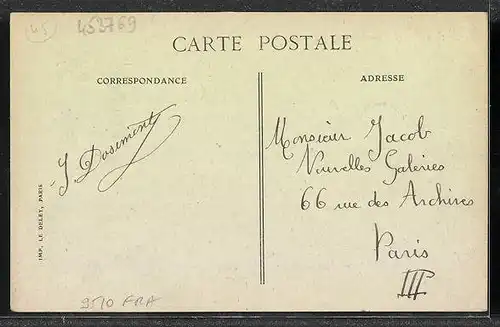 45
453769
CARTE POSTALE
CORRESPONDANCE
ADRESSE
J. Dosimont
Monsieur Jacob
Nouvelles Galeries
66 rue des Archives
Paris
III
IMP. LE DELEY, PARIS
9510 FRA